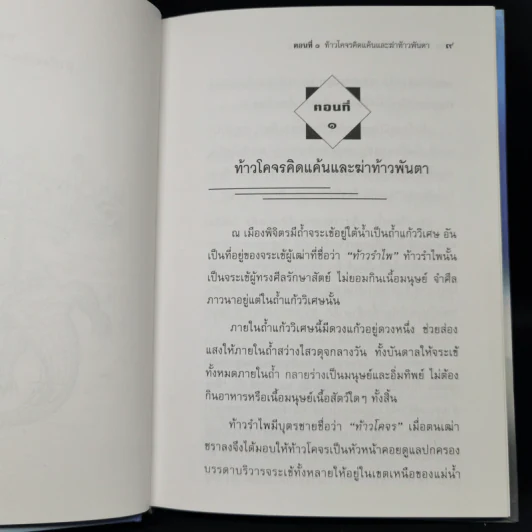 ตอนที่ ๑ ท้าวโคจรคิดแค้นและฆ่าท้าวพันตา ๗
ตอนที่
๑
ท้าวโคจรคิดแค้นและฆ่าท้าวพันตา
ณ เมืองพิจิตรมีถ้ำจระเข้อยู่ใต้น้ำเป็นถ้ำแก้ววิเศษ อัน
เป็นที่อยู่ของจระเข้ผู้เฒ่าที่ชื่อว่า "ท้าวรำไพ" ท้าวรำไพนั้น
เป็นจระเข้ผู้ทรงศีลรักษาสัตย์ ไม่ยอมกินเนื้อมนุษย์ จำศีล
ภาวนาอยู่แต่ในถ้ำแก้ววิเศษนั้น
ภายในถ้ำแก้ววิเศษนี้มีดวงแก้วอยู่ดวงหนึ่ง ช่วยส่อง
แสงให้ภายในถ้ำสว่างไสวดุจกลางวัน ทั้งบันดาลให้จระเข้
ทั้งหมดภายในถ้ำ กลายร่างเป็นมนุษย์และอิ่มทิพย์ ไม่ต้อง
กินอาหารหรือเนื้อมนุษย์เนื้อสัตว์ใดๆ ทั้งสิ้น
ท้าวรำไพมีบุตรชายชื่อว่า "ท้าวโคจร" เมื่อตนเฒ่า
ชราลงจึงได้มอบให้ท้าวโคจรเป็นหัวหน้าคอยดูแลปกครอง
บรรดาบริวารจระเข้ทั้งหลายให้อยู่ในเขตเหนือของแม่น้ำ